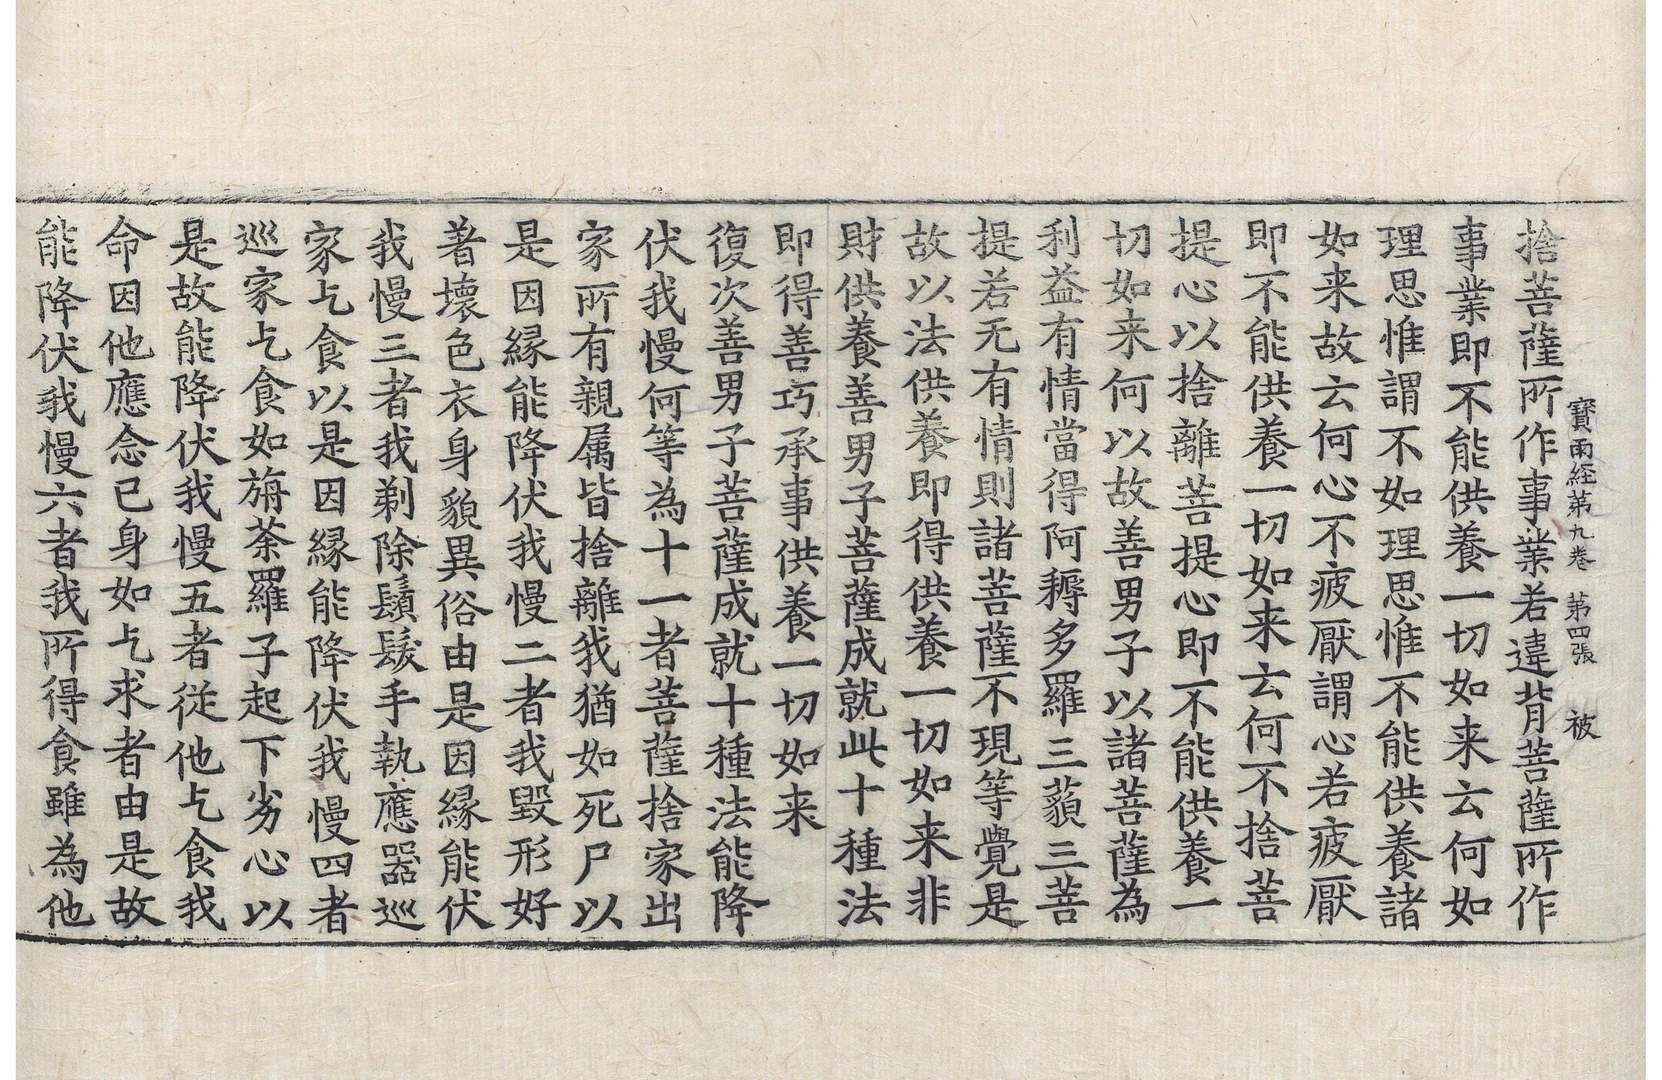 寳雨経苐九卷　苐四張　被
捨菩薩所作事業若違背菩薩所作
事業即不能供養一切如来云何如
理思惟謂不如理思惟不能供養諸
如来故云何心不疲厭謂心若疲厭
即不能供養一切如来云何不捨菩
提心以捨離菩提心即不能供養一
切如来何以故善男子以諸菩薩為
利益有情當得阿耨多羅三藐三菩
提若无有情則諸菩薩不現等覺是
故以法供養即得供養一切如来非
財供養善男子菩薩成就此十種法
即得善巧承事供養一切如来
復次善男子菩薩成就十種法能降
伏我慢何等為十一者菩薩捨家出
家所有親属皆捨離我猶如死尸以
是因縁能降伏我慢二者我毀形好
著壞色衣身貌異俗由是因縁能伏
我慢三者我剃除鬚髮手執應器巡
家乞食以是因縁能降伏我慢四者
巡家乞食如旃荼羅子起下劣心以
是故能降伏我慢五者從他乞食我
命因他應念已身如乞求者由是故
能降伏我慢六者我所得食雖為他